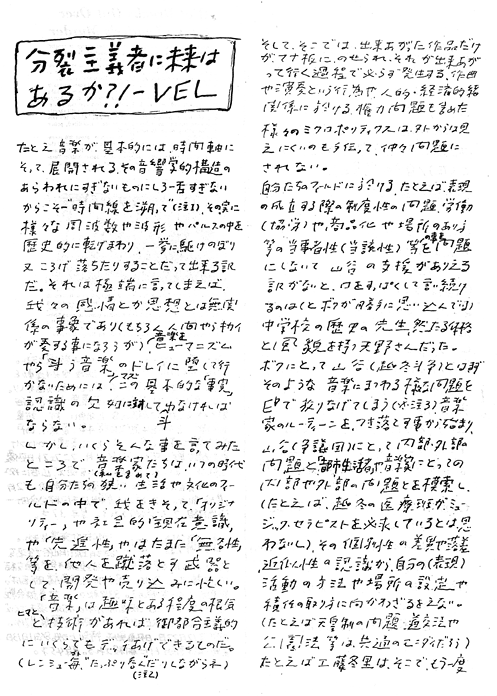 分裂主義者に未来は
あるか?!－VEL
たとえ音楽が、基本的には、時間軸に
そって、展開される、その音響学的構造の
あらわれにすぎないものにしろ－看すぎない
からこそ－時間線を溯って(注1)、その実に
様々な周波数や波形やパルスの中を
歴史的に転げまわり、一挙に駆けのぼり
又ころげ落ちたりすることだって出来る訳
だ。それは極端に言ってしまえば、
我々の感情とか思想とは無関
係の事象であり(もちろん人間やらキカイ
が奏する事になろうが)、音楽をヒューマニズム
やら「斗う音楽」のドレイに堕して行
かないためには、この基本的な「事実」
認識の欠如に対して斗わなければ
ならない。
しかし、いくらそんな事を言ってみた
ところで音楽家たちは、いつの時代
も自分たちの狭い生活や文化のフィー
ルドの中で、我をきそって、「オリジナ
リティー」や社会的「現在意識」
や「先進性」やはたまた「無名性」
等を、他人を蹴落とす武器と
して、開発や売り込みに忙しい。
「音楽」は趣味とある程度の根気
と技術があれば、御都合主義的
にいくらでもデッチあげできるものだ。
(注2)
そして、そこでは、出来あがった作品だけ
がマナ板に、のせられ、それが出来あが
って行く過程で必らず発生する、作曲
や演奏という行為や人的・経済的諸
関係に於ける、権力問題も含めた
様々のミクロ・ポリティクスは、外からは見
えにくいのも手伝って、仲々問題に
されない。
自分たちのフィールドに於ける、たとえば表現
の成立する際の制度性の問題、労働
(協労)や商品化や場所のあり方
等の当事者性(当該性)等を問題
にしないで山谷の支援がありえる
訳がないと、口をすっぱくして言い続け
るのは(とボクが勝手に思い込んでる)
中学校の歴史の先生然たる体格
と風貌を持つ天野さんだった。
ボクにとって山谷(越冬斗争)とはま
そのような音楽にまつわる様々な問題を
音楽
家のルーティーンを、つき落とす事からはじまり、
山谷(争議団)にとって内部・外部の
問題と都市生活者や音楽にとっての
内部や外部の問題とを模索し、
(たとえば、越冬の医療班がミュー
ジック・セラピストを必要としているとは思
わないし)、その個別性の差異や落差
近似性の認識が、自分の(表現)
活動の方法や場所の設定や
積極の取り方に向かわざるをえない。
(たとえば天皇制の問題、道交法や
たとえば工藤冬里は、そこで、もう一度